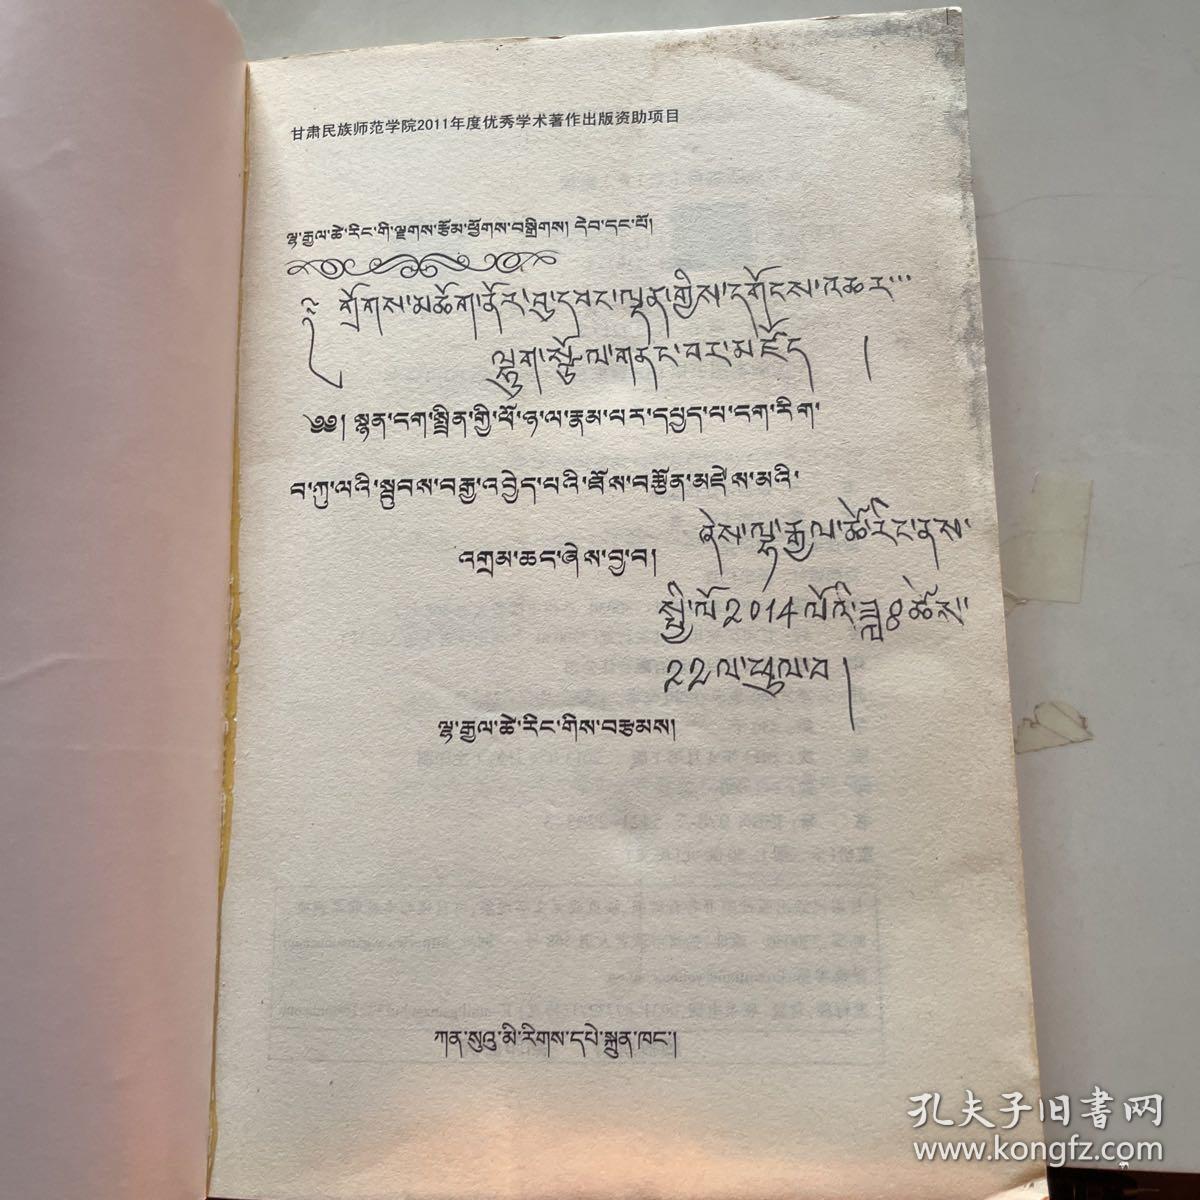 甘肃民族师范学院2011年度优秀学术著作出版资助项目
ལྷ་རྒྱལ་ཚེ་རིང་གི་ལྗགས་རྩོམ་ཕྱོགས་བསྒྲིགས། དེབ་དང་པོ།
གྲོགས་མཆོག་ནོར་བུ་དབང་ལྡན་གྱིས་དགོངས་འཆར་
ལྷུག་སྩོལ་གནང་བར་མཛོད །
༄༅། སྙན་ངག་སྤྲིན་གྱི་ཕོ་ཉ་ལ་རྣམ་པར་དཔྱད་པ་ངག་རིག་
བ་ཀུ་ལའི་སྦུབས་བརྒྱ་འབྱེད་པའི་ཐོས་བརྩོན་མཛེས་མའི་
ཞེས་ལྷ་རྒྱལ་ཚེ་རིང་ནས་
འགྲམ་ཆང་ཞེས་བྱ་བ།
སྤྱི་ལོ2014ལོའི་ཟླ8ཚེས་
22ལ་ཕུལ་བ །
ལྷ་རྒྱལ་ཚེ་རིང་གིས་བརྩམས།
ཀན་སུའུ་མི་རིགས་དཔེ་སྐྲུན་ཁང་།
孔夫子旧書网
www.kongfz.com